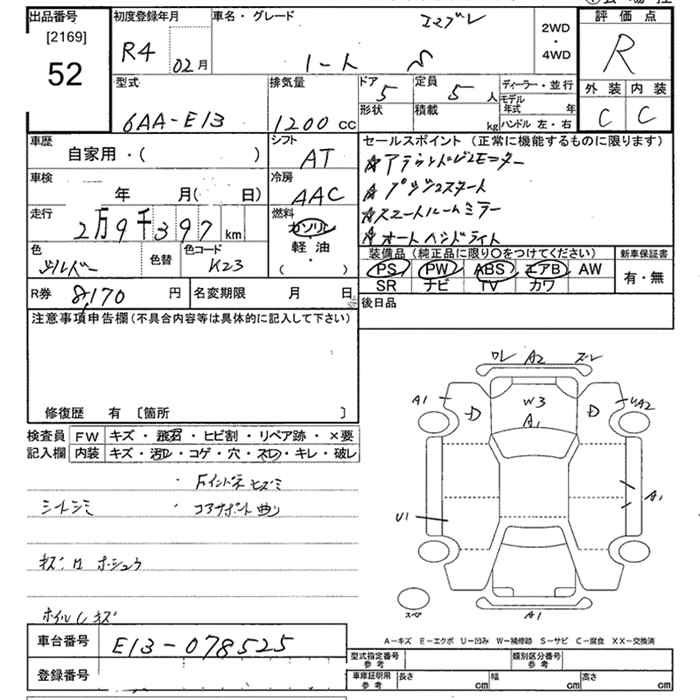 出品番号
[2169]
52
初度登録年月
R4 02月
車名・グレード
ノート S
2WD
・
4WD
評価点
R
外装 内装
C C
型式
6AA-E13
排気量
1200cc
ドア
5
形状
定員
5人
積載
kg
ディーラー・並行
モデル年式 年
ハンドル 左・右
車歴
自家用・( )
シフト
AT
車検
年 月( 日)
冷房
AAC
走行
2万9千397km
燃料
ガソリン
軽油
( )
色
シルバー
色替
色コード
K23
R券 8,170円
名変期限 月 日
セールスポイント (正常に機能するものに限ります)
☆アラウンドビューモニター
☆プッシュスタート
☆スマートルームミラー
☆オートヘッドライト
装備品 (純正品に限り○をつけてください)
PS PW ABS エアB AW
SR ナビ TV カワ
新車保証書
有・無
後日品
注意事項申告欄(不具合内容等は具体的に記入して下さい)
修復歴 有 〔箇所 〕
検査員
記入欄
FW キズ・飛石・ヒビ割・リペア跡・×要
内装 キズ・汚レ・コゲ・穴・スレ・キレ・破レ
・Fインドネヒズミ
シートシミ ・コアサポート曲り
キズ凹ホシュウ
ホイルキズ
ワレ A2 ズレ
A1
D
W3
A1
D
UA2
A1
U1
スペ
A1
A-キズ E-エクボ U-凹み W-補修跡 S-サビ C-腐食 XX-交換済
車台番号 E13-078525
登録番号
型式指定番号
参考
類別区分番号
参考
車庫証明用
参考
長さ cm 幅 cm 高さ cm